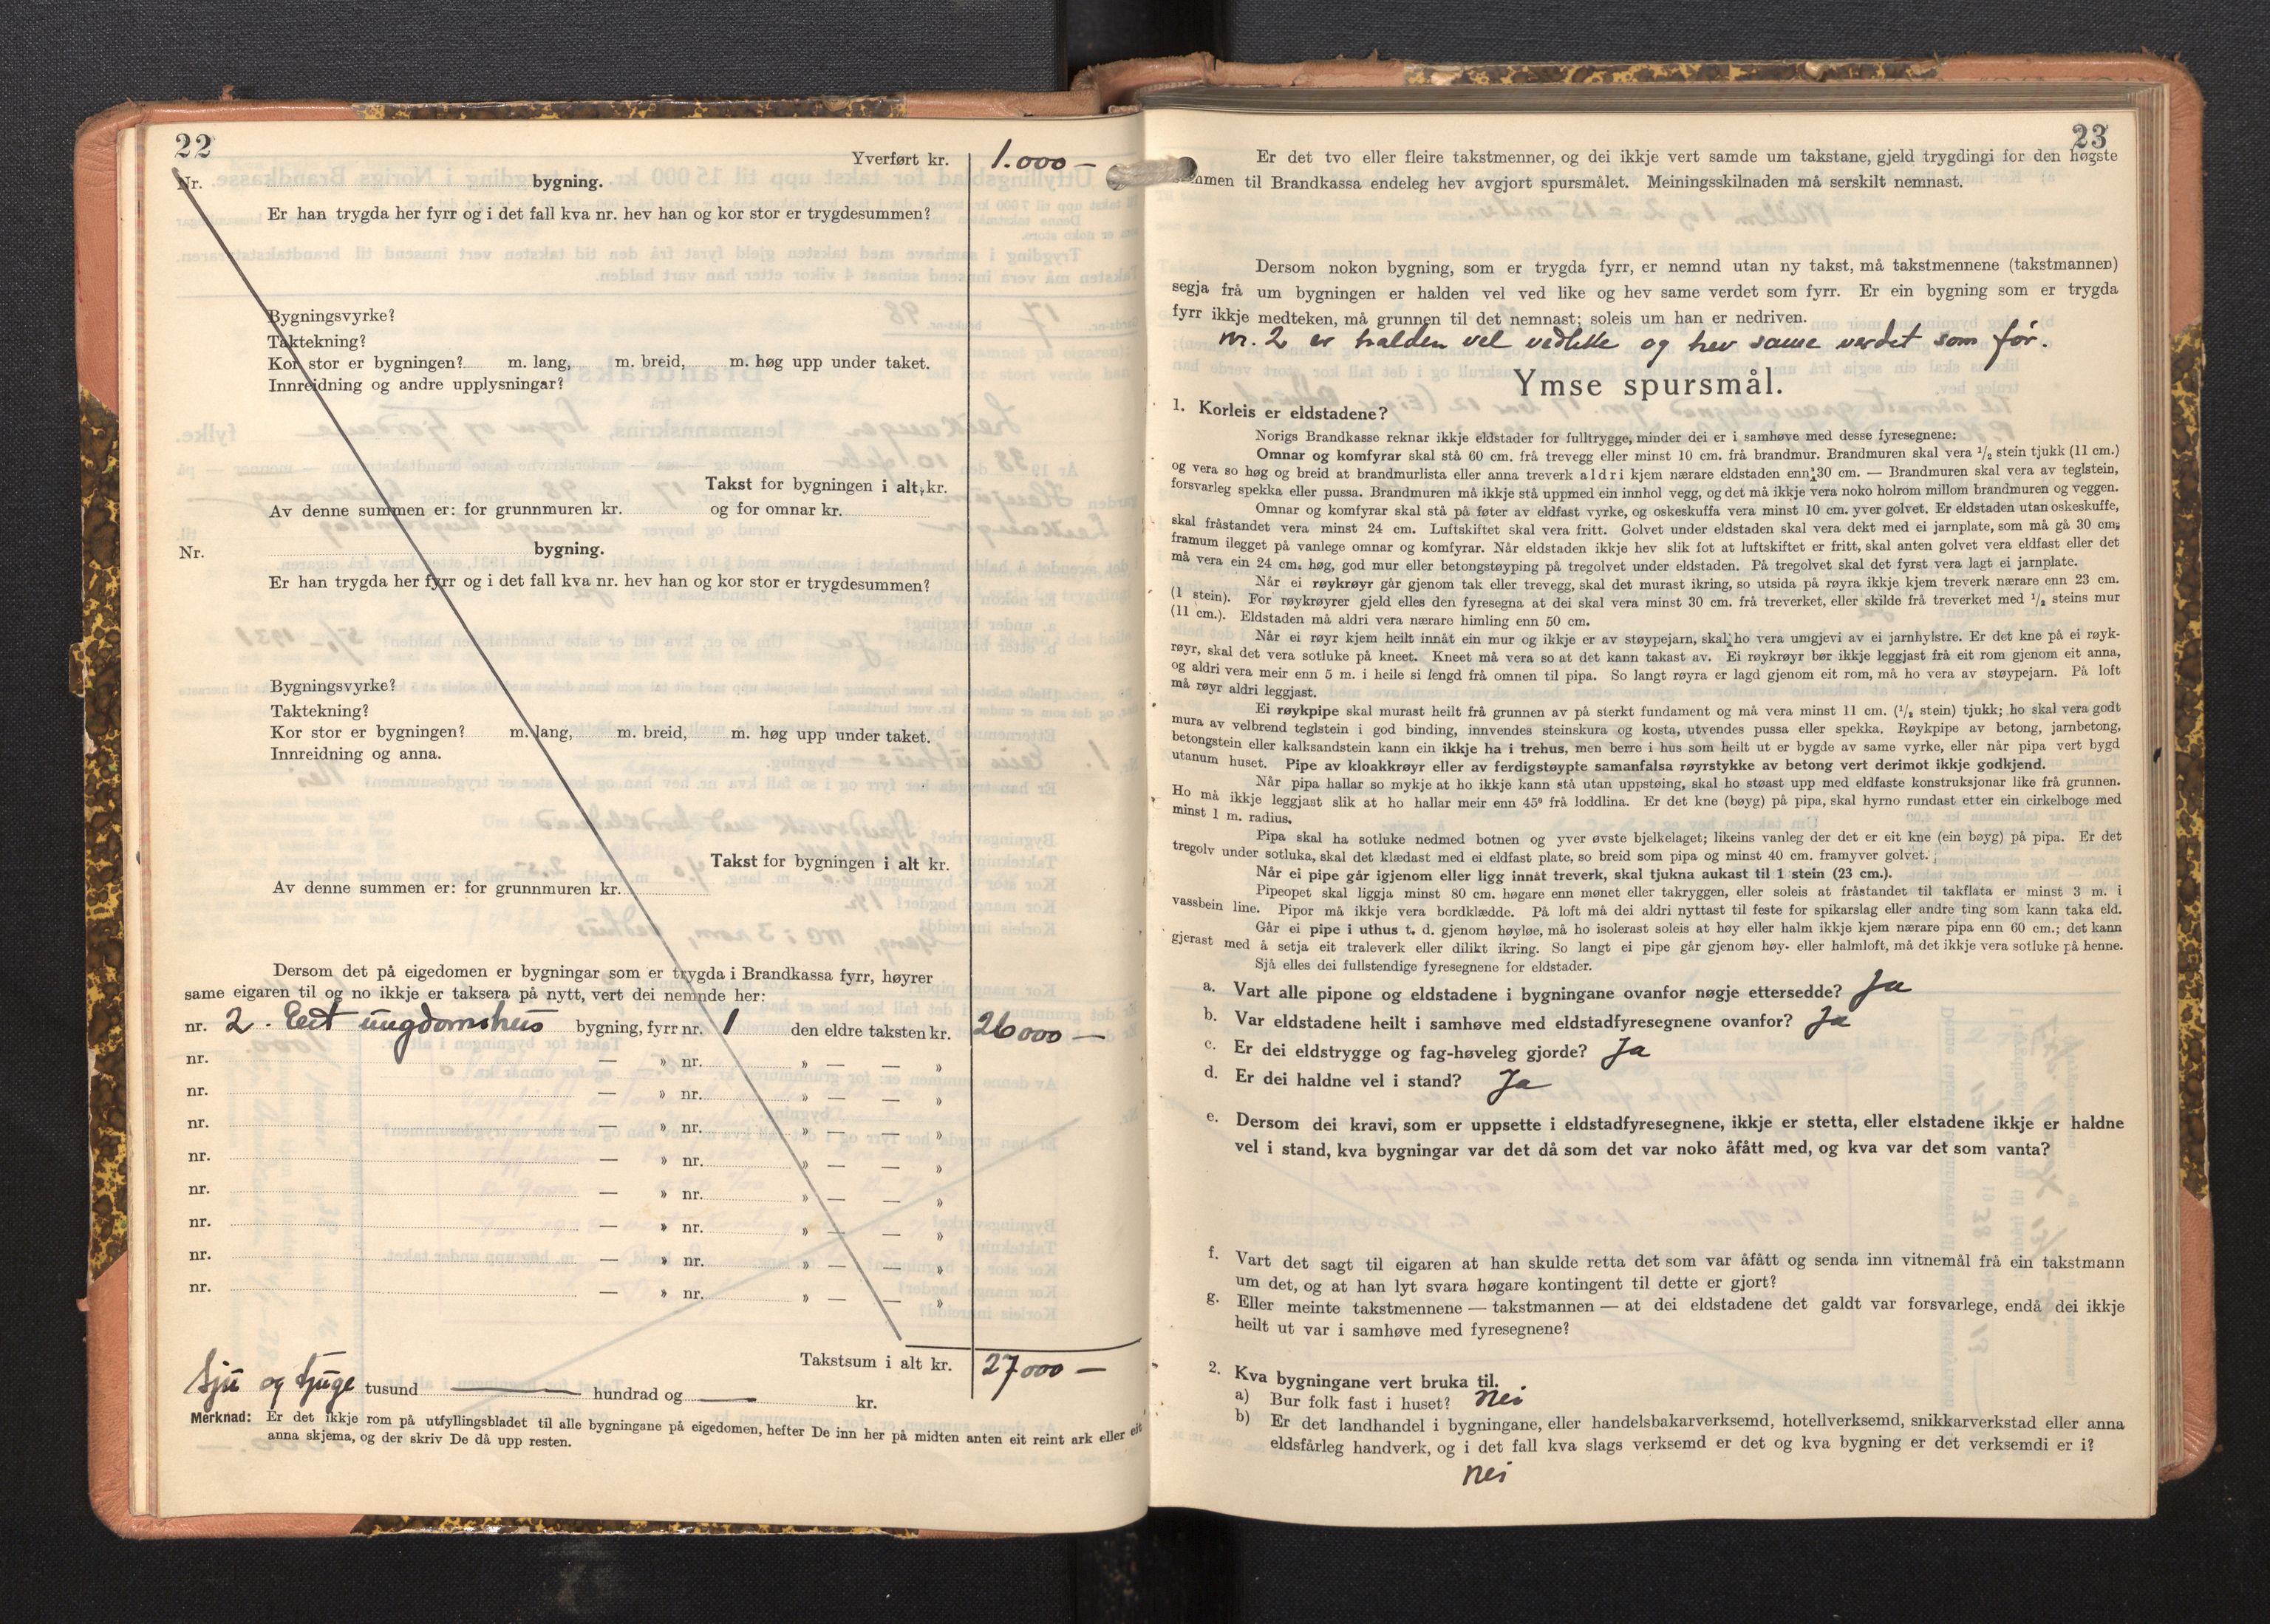 22
Yverført kr. 1.000 —
Nr. bygning.
Er han trygda her fyrr og i det fall kva nr. hev han og kor stor er trygdesummen?
Bygningsvyrke?
Taktekning?
Kor stor er bygningen? m. lang, m. breid, m. høg upp under taket.
Innreidning og andre upplysningar?
Takst for bygningen i alt, kr.
Av denne summen er: for grunnmuren kr. og for omnar kr.
Nr. bygning.
Er han trygda her fyrr og i det fall kva nr. hev han og kor stor er trygdesummen?
Bygningsvyrke?
Taktekning?
Kor stor er bygningen? m. lang, m. breid, m. høg upp under taket.
Innreidning og anna.
Takst for bygningen i alt kr.
Av denne summen er: for grunnmuren kr.
Dersom det på eigedomen er bygningar som er trygda i Brandkassa fyrr, høyrer
same eigaren til og no ikkje er taksera på nytt, vert dei nemnde her:
nr. 2. Eit ungdomshus bygning, fyrr nr. 1 den eldre taksten kr. 26000 —
nr. — » nr. » — — »
nr. — » nr. » — — »
nr. — » nr. » — — »
nr. — » nr. » — — »
nr. — » nr. » — — »
nr. — » nr. » — — »
nr. — » nr. » — — »
nr. — » nr. » — — »
Takstsum i alt kr. 27000 —
Sju og tjuge tusund — hundrad og — kr.
Merknad: Er det ikkje rom på utfyllingsbladet til alle bygningane på eigedomen, hefter De inn her på midten anten eit reint ark eller eit
anna skjema, og der skriv De då upp resten.
23
Er det tvo eller fleire takstmenner, og dei ikkje vert samde um takstane, gjeld trygdingi for den høgste
summen til Brandkassa endeleg hev avgjort spursmålet. Meiningsskilnaden må serskilt nemnast.
Dersom nokon bygning, som er trygda fyrr, er nemnd utan ny takst, må takstmennene (takstmannen)
segja frå um bygningen er halden vel ved like og hev same verdet som fyrr. Er ein bygning som er trygda
fyrr ikkje medteken, må grunnen til det nemnast; soleis um han er nedriven.
nr. 2 er halden vel vedlike og hev same verdet som før.
Ymse spursmål.
1. Korleis er eldstadene?
Norigs Brandkasse reknar ikkje eldstader for fulltrygge, minder dei er i samhøve med desse fyresegnene:
Omnar og komfyrar skal stå 60 cm. frå trevegg eller minst 10 cm. frå brandmur. Brandmuren skal vera 1/2 stein tjukk (11 cm.)
og vera so høg og breid at brandmurlista eller anna treverk aldri kjem nærare eldstaden enn 30 cm. — Brandmuren skal vera av teglstein,
forsvarleg spekka eller pussa. Brandmuren må ikkje stå uppmed ein innhol vegg, og det må ikkje vera noko holrom millom brandmuren og veggen.
Omnar og komfyrar skal stå på føter av eldfast vyrke, og oskeskuffa vera minst 10 cm. yver golvet. Er eldstaden utan oskeskuffe,
skal fråstandet vera minst 24 cm. Luftskiftet skal vera fritt. Golvet under eldstaden skal vera dekt med ei jarnplate, som må gå 30 cm.
framum ilegget på vanlege omnar og komfyrar. Når eldstaden ikkje hev slik fot at luftskiftet er fritt, skal anten golvet vera eldfast eller det
må vera ein 24 cm. høg, god mur eller betongstøyping på tregolvet under eldstaden. På tregolvet skal det fyrst vera lagt ei jarnplate.
Når ei røykrøyr går gjenom tak eller trevegg, skal det murast ikring, so utsida på røyra ikkje kjem treverk nærare enn 23 cm.
(1 stein). For røykrøyrer gjeld elles den fyresegna at dei skal vera minst 30 cm. frå treverket, eller skilde frå treverket med 1/2 steins mur
(11 cm.). Eldstaden må aldri vera nærare himling enn 50 cm.
Når ei røyr kjem heilt innåt ein mur og ikkje er av støypejarn, skal ho vera umgjevi av ei jarnhylstre. Er det kne på ei røyk-
røyr, skal det vera sotluke på kneet. Kneet må vera so at det kann takast av. Ei røykrøyr bør ikkje leggjast frå eit rom gjenom eit anna,
og aldri vera meir enn 5 m. i heile si lengd frå omnen til pipa. So langt røyra er lagd gjenom eit rom, må ho vera av støypejarn. På loft
må røyr aldri leggjast.
Ei røykpipe skal murast heilt frå grunnen av på sterkt fundament og må vera minst 11 cm. (1/2 stein) tjukk; ho skal vera godt
mura av velbrend teglstein i god binding, innvendes steinskura og kosta, utvendes pussa eller spekka. Røykpipe av betong, jarnbetong,
betongstein eller kalksandstein kann ein ikkje ha i trehus, men berre i hus som heilt ut er bygde av same vyrke, eller når pipa vert bygd
utanum huset. Pipe av kloakkrøyr eller av ferdigstøypte samanfalsa røyrstykke av betong vert derimot ikkje godkjend.
Når pipa hallar so mykje at ho ikkje kann stå utan uppstøing, skal ho støast upp med eldfaste konstruksjonar like frå grunnen.
Ho må ikkje leggjast slik at ho hallar meir enn 45° frå loddlina. Er det kne (bøyg) på pipa, skal hyrno rundast etter ein cirkelboge med
minst 1 m. radius.
Pipa skal ha sotluke nedmed botnen og yver øvste bjelkelaget; likeins vanleg der det er eit kne (ein bøyg) på pipa. Er det
tregolv under sotluka, skal det klædast med ei eldfast plate, so breid som pipa og minst 40 cm. framyver golvet.
Når ei pipe går igjenom eller ligg innåt treverk, skal tjukna aukast til 1 stein (23 cm.).
Pipeopet skal liggja minst 80 cm. høgare enn mønet eller takryggen, eller soleis at fråstandet til takflata er minst 3 m. i
vassbein line. Pipor må ikkje vera bordklædde. På loft må dei aldri nyttast til feste for spikarslag eller andre ting som kann taka eld.
Går ei pipe i uthus t. d. gjenom høyløe, må ho isolerast soleis at høy eller halm ikkje kjem nærare pipa enn 60 cm.; det kann
gjerast med å setja eit traleverk eller dilikt ikring. So langt ei pipe går gjenom høy- eller halmloft, må det ikkje vera sotluke på henne.
Sjå elles dei fullstendige fyresegnene for eldstader.
a. Vart alle pipone og eldstadene i bygningane ovanfor nøgje ettersedde? Ja
b. Var eldstadene heilt i samhøve med eldstadfyresegnene ovanfor? Ja
c. Er dei eldstrygge og fag-høveleg gjorde? Ja
d. Er dei haldne vel i stand? Ja
e. Dersom dei kravi, som er uppsette i eldstadfyresegnene, ikkje er stetta, eller elstadene ikkje er haldne
vel i stand, kva bygningar var det då som det var noko åfått med, og kva var det som vanta?
f. Vart det sagt til eigaren at han skulde retta det som var åfått og senda inn vitnemål frå ein takstmann
um det, og at han lyt svara høgare kontingent til dette er gjort?
g. Eller meinte takstmennene — takstmannen — at dei eldstadene det galdt var forsvarlege, endå dei ikkje
heilt ut var i samhøve med fyresegnene?
2. Kva bygningane vert bruka til.
a) Bur folk fast i huset? Nei
b) Er det landhandel i bygningane, eller handelsbakarverksemd, hotellverksemd, snikkarverkstad eller anna
eldsfårleg handverk, og i det fall kva slags verksemd er det og kva bygning er det verksemdi er i?
Nei